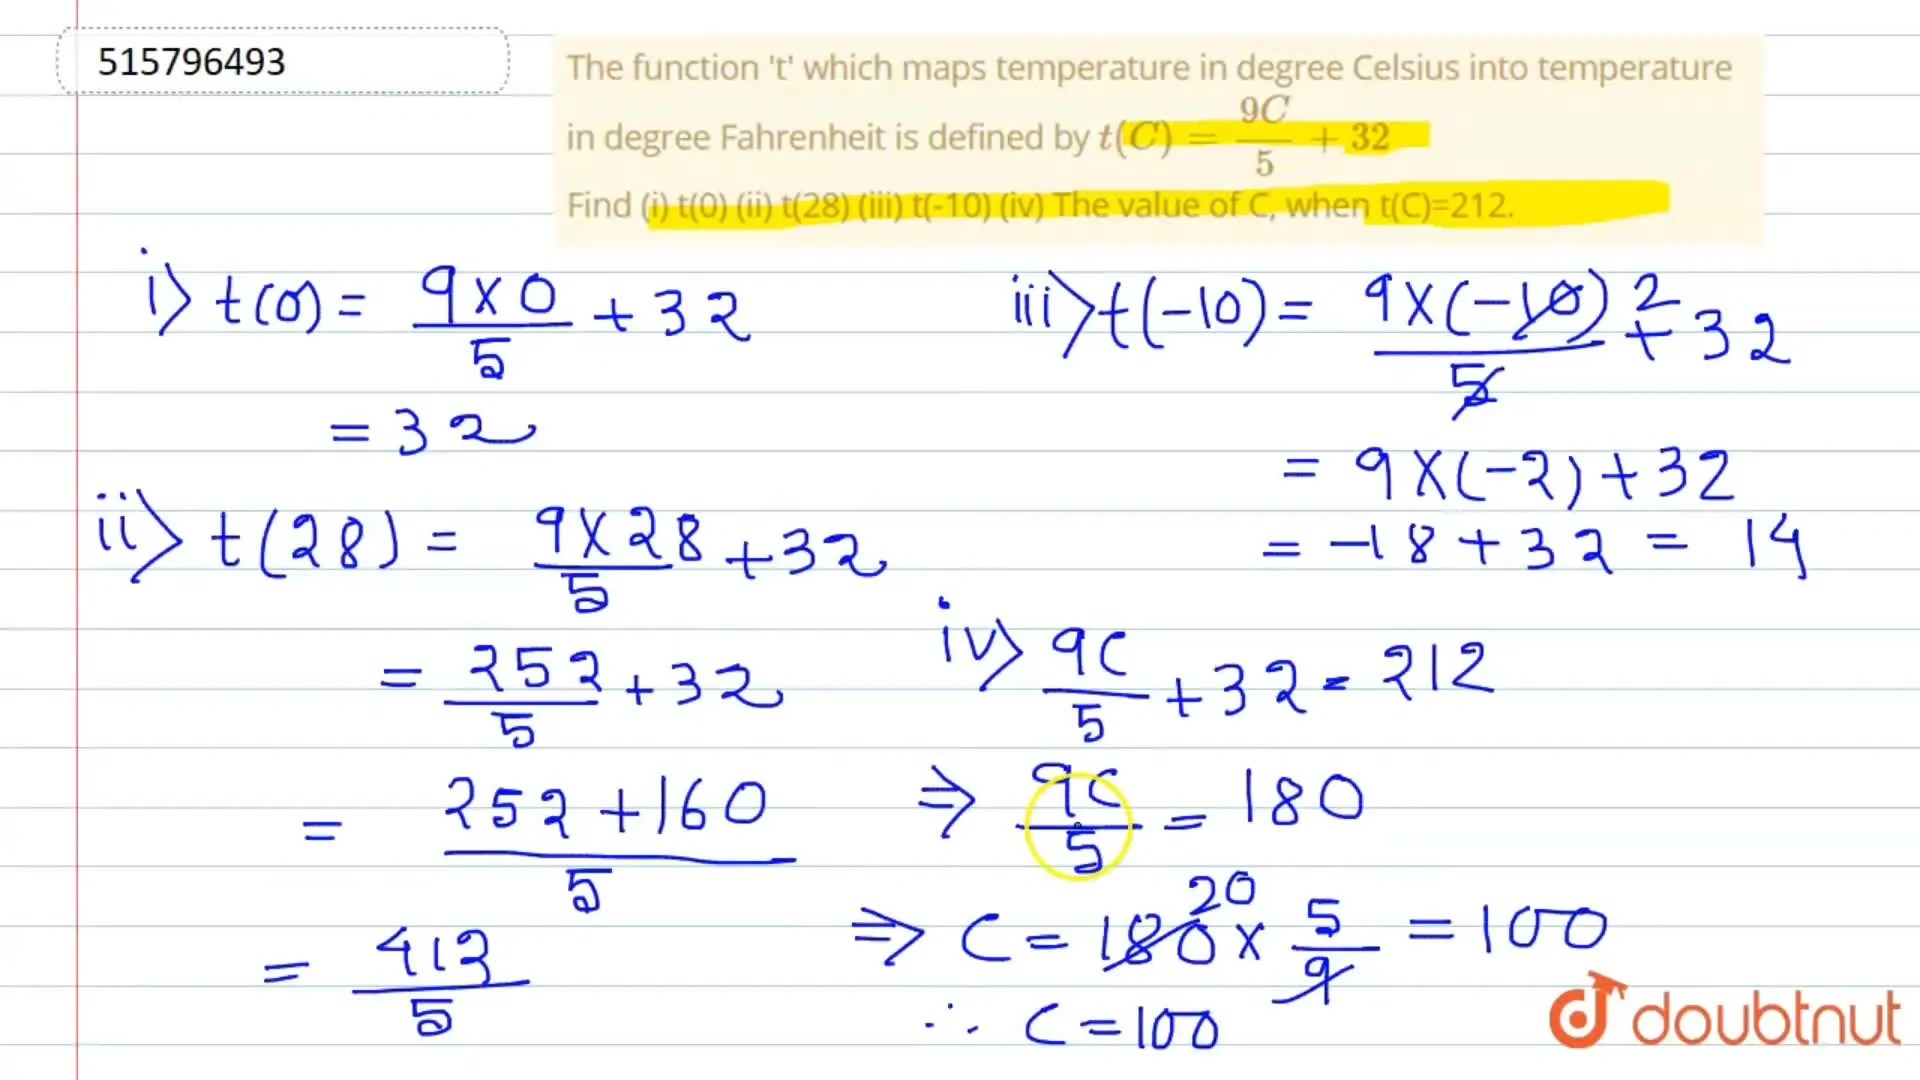 515796493
The function 't' which maps temperature in degree Celsius into temperature
in degree Fahrenheit is defined by t(C) = 9C/5 + 32
Find (i) t(0) (ii) t(28) (iii) t(-10) (iv) The value of C, when t(C)=212.
i> t(0) = 9×0/5 + 32
= 32
ii> t(28) = 9×28/5 + 32
= 252/5 + 32
= 252+160/5
= 412/5
iii> t(-10) = 9×(-10)2/5 + 32
= 9×(-2)+32
= -18+32 = 14
iv> 9C/5 + 32 = 212
⇒ 9C/5 = 180
⇒ C = 180 20 × 5/9 = 100
∴ C = 100
doubtnut